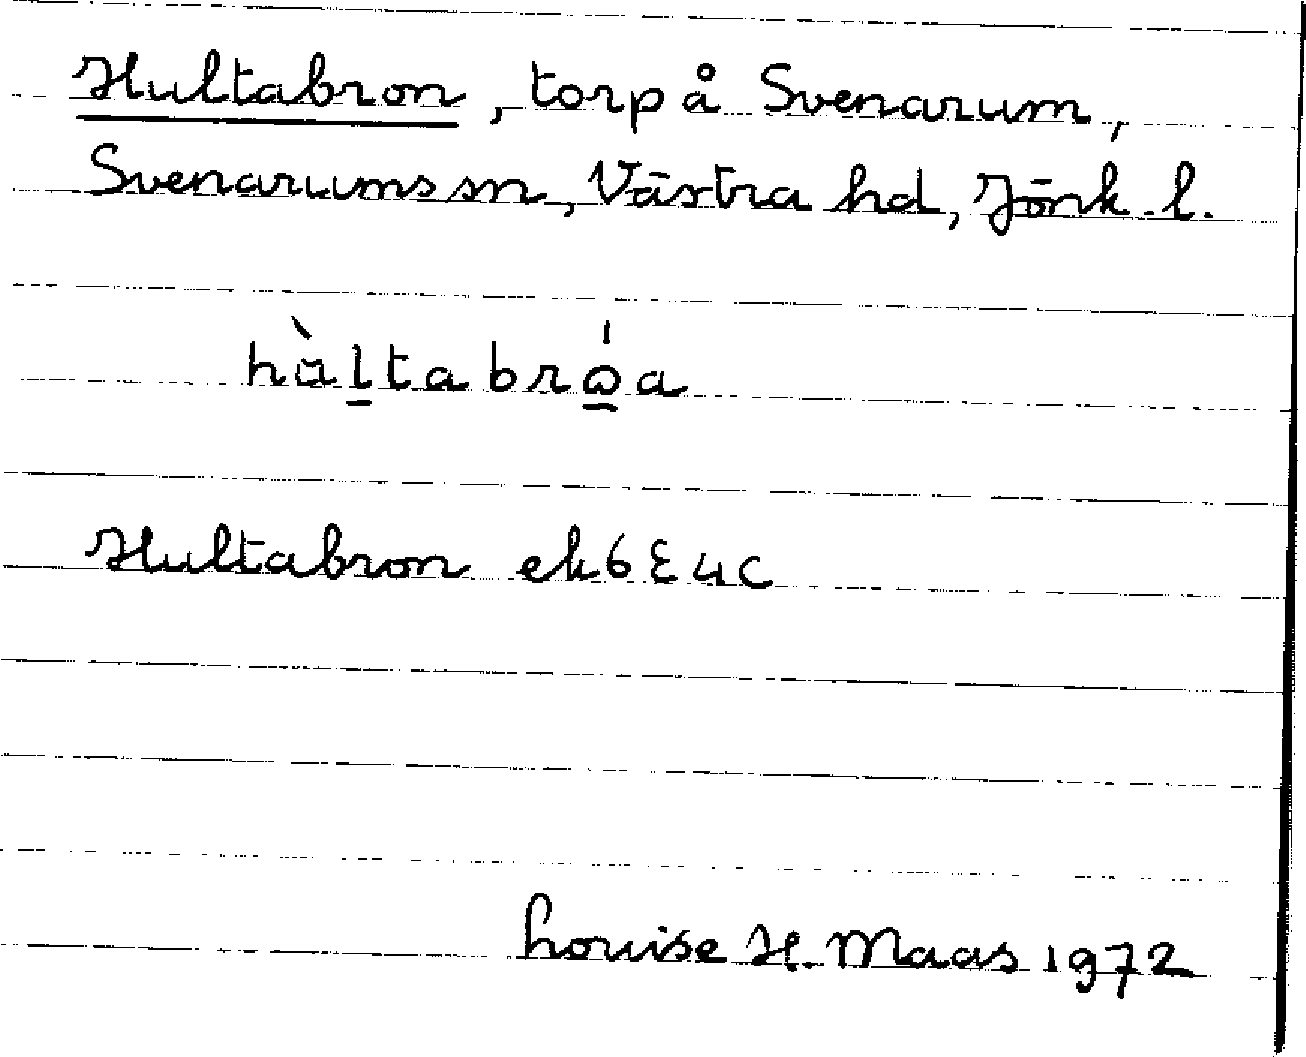 Hultabron, torp å Svenarum,
Svenarums sn, Västra hd, Jönk. l.
hàl̲tabrώ̲a
Hultabron ek 6 E 4 c
Louise H. Maas 1972